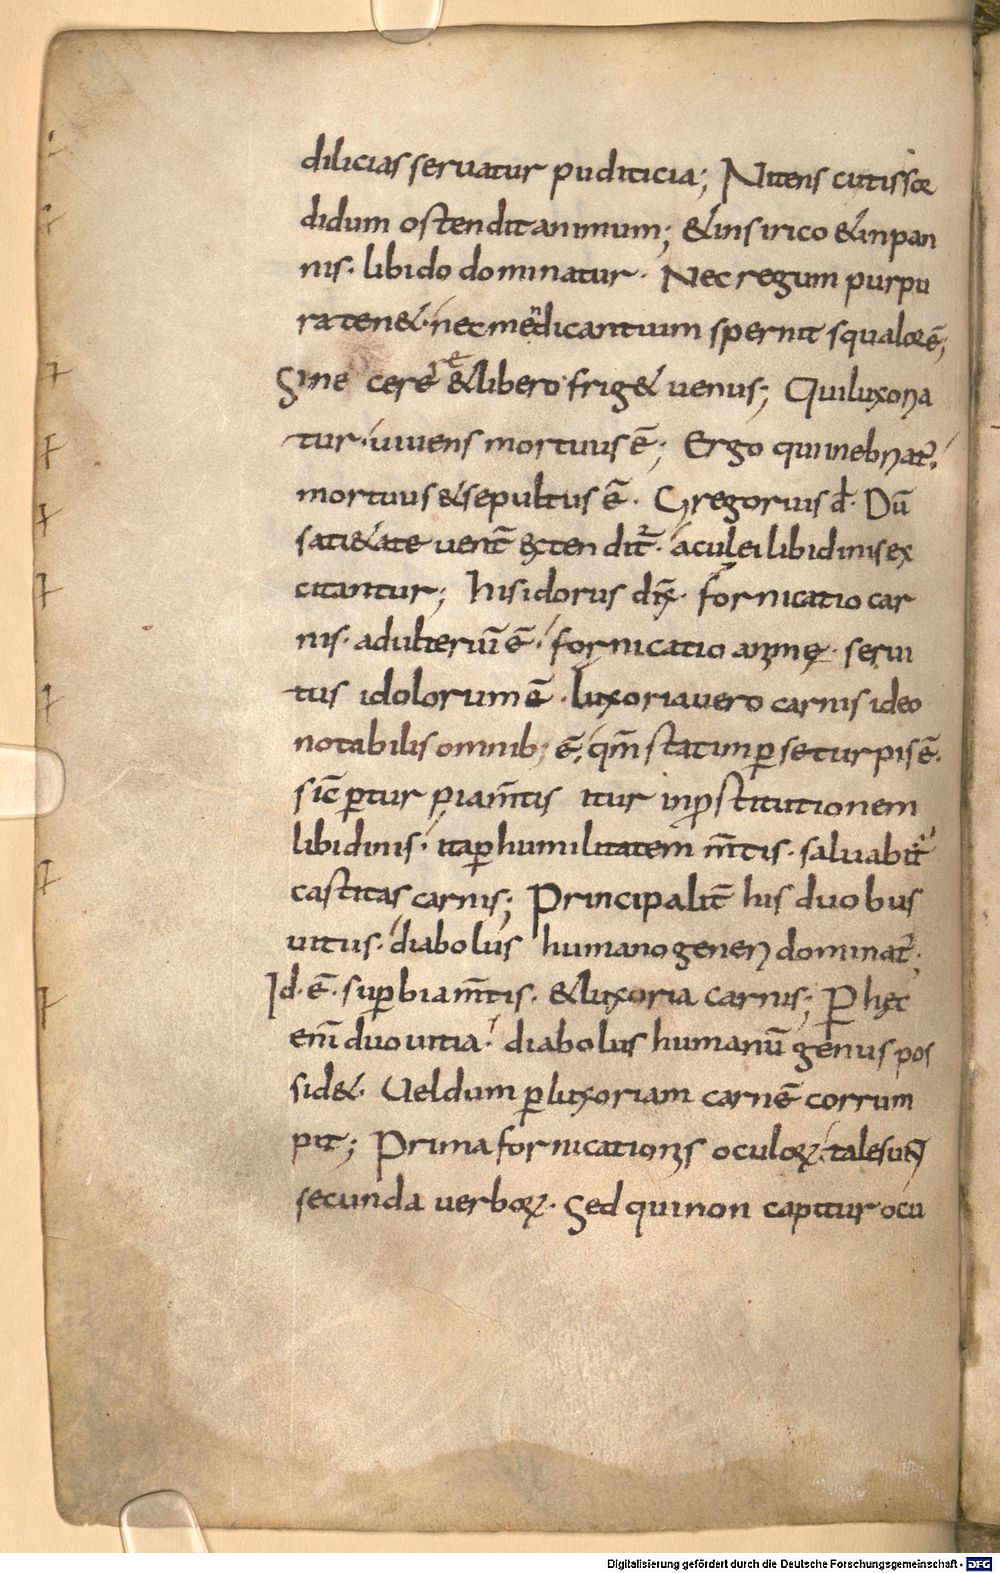 dilicias seruatur pudicicia; Nitens cutis sor
didum ostendit animum; & in sirico & in pan
nis· libido dominatur· Nec regum purpu
ra ten&· nec mendicantium spernit squalorē;
Sine cerere & libero frig& uenus; Qui luxoria
tur· uiuens mortuus ē; Ergo qui inebriat̄·
mortuus & sepultus ē· Gregorius đ· Dū
sati&ate uent̄ extendit̄· aculei libidinis ex
citantur; hisidorus dix̄· fornicatio car
nis· adulteriū ē· fornicatio animę· serui
tus idolorum ē· luxoria uero carnis ideo
notabilis omnib; ē, qm̄ statim ꝑ se turpis ē·
sic̄ ꝑtur piam̄tis itur in ꝓstitutionem
libidinis· ita ꝑ humilitatem m̄tis· saluabit̄
castitas carnis; Principalit̄ his duobus
uitiis· diabolus humano generi dominat̄·
Id·ē· suꝑbia m̄tis· & luxoria carnis; Ꝑ hęc
enī duo uitia· diabolus humanū genus pos
sid&· Uel dum ꝑ luxoriam carnē corrum
pit; Prima fornicationis oculoꝝ· tale sunt
secunda uerboꝝ· Sed qui non capitur ocu
Digitalisierung gefördert durch die Deutsche Forschungsgemeinschaft - DFG